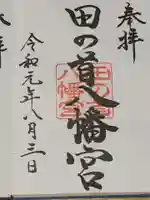 奉拝
田の首八幡宮
田の首
八幡宮
令和元年八月三日